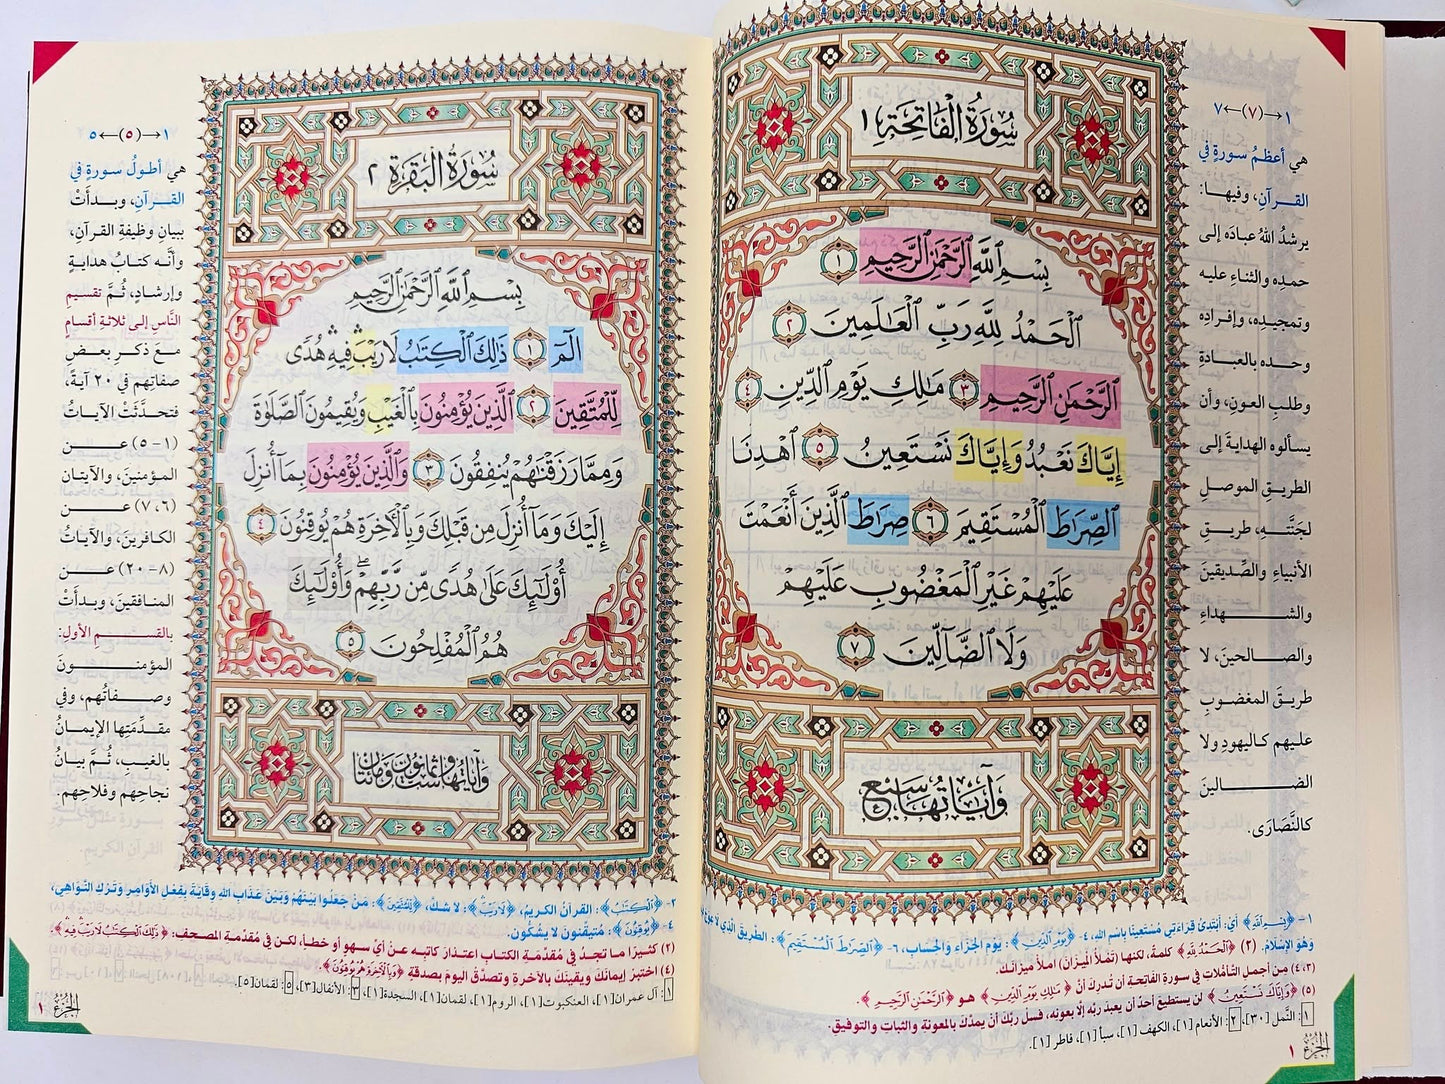 ١→(٧)←٧
هي أعظمُ سورةٍ في
القرآنِ، وفيها:
يرشدُ اللهُ عبادَه إلى
حمدِه والثناءِ عليه
وتمجيدِه، وإفرادِه
وحده بالعبادةِ
وطلبِ العونِ، وأن
يسألوه الهدايةَ إلى
الطريقِ الموصلِ
لجنَّتِه، طريقِ
الأنبياءِ والصِّديقينَ
والشهداءِ
والصالحينَ، لا
طريقَ المغضوبِ
عليهم كاليهودِ ولا
الضالينَ
كالنَّصَارَى.
سُورَةُ الْفَاتِحَةِ ١
بِسْمِ ٱللَّهِ ٱلرَّحْمَٰنِ ٱلرَّحِيمِ ١
ٱلْحَمْدُ لِلَّهِ رَبِّ ٱلْعَٰلَمِينَ ٢
ٱلرَّحْمَٰنِ ٱلرَّحِيمِ ٣ مَٰلِكِ يَوْمِ ٱلدِّينِ ٤
إِيَّاكَ نَعْبُدُ وَإِيَّاكَ نَسْتَعِينُ ٥ ٱهْدِنَا
ٱلصِّرَٰطَ ٱلْمُسْتَقِيمَ ٦ صِرَٰطَ ٱلَّذِينَ أَنْعَمْتَ
عَلَيْهِمْ غَيْرِ ٱلْمَغْضُوبِ عَلَيْهِمْ
وَلَا ٱلضَّآلِّينَ ٧
وَآيَاتُهَا سَبْعٌ
١- ﴿بِسْمِ اللَّهِ﴾ أيْ: أَبْتَدِئُ قِرَاءَتِي مُسْتَعِينًا بِاسْمِ اللهِ، ٤- ﴿يَوْمِ الدِّينِ﴾: يَوْمِ الجَزَاءِ وَالحِسَابِ، ٦- ﴿الصِّرَاطَ الْمُسْتَقِيمَ﴾: الطَّرِيقَ الَّذِي لَا
وَهُوَ الإِسْلَامُ. (٢) ﴿الْحَمْدُ لِلَّهِ﴾ كلمةٌ، لكنها (تَمْلَأُ المِيزَانَ) املأ ميزانَك.
(٣، ٤) مِن أجملِ التَّأمُّلاتِ في سورةِ الفاتحةِ أن تُدركَ أنَّ ﴿مَالِكِ يَوْمِ الدِّينِ﴾ هو ﴿الرَّحْمَٰنِ الرَّحِيمِ﴾.
(٥) ﴿وَإِيَّاكَ نَسْتَعِينُ﴾ لن يستطيعَ أحدٌ أن يعبدَ ربَّه إلَّا بعونِه، فسلْ ربَّك أنْ يمدَّكَ بالمعونةِ والثباتِ والتوفيقِ.
١: النَّمل [٣٠]، ٢: الأنعام [١]، الكهف [١]، سبأ [١]، فاطر [١].
الجزء ١
١→(٥)←٥
هي أطولُ سورةٍ في
القرآنِ، وبدأَتْ
ببيانِ وظيفةِ القرآنِ،
وأنَّه كتابُ هدايةٍ
وإرشادٍ، ثُمَّ تقسيمِ
النَّاسِ إلى ثلاثةِ أقسامٍ
معَ ذكرِ بعضِ
صفاتِهم في ٢٠ آيةً،
فتحدَّثَتْ الآياتُ
(١-٥) عن
المؤمنينَ، والآيتانِ
(٦، ٧) عن
الكافرينَ، والآياتُ
(٨-٢٠) عن
المنافقينَ، وبدأتْ
بالقسمِ الأولِ:
المؤمنونَ
وصفاتُهم، وفي
مقدِّمَتِها الإيمانُ
بالغيبِ، ثُمَّ بيانُ
نجاحِهم وفلاحِهم.
سُورَةُ الْبَقَرَةِ ٢
بِسْمِ ٱللَّهِ ٱلرَّحْمَٰنِ ٱلرَّحِيمِ
الٓمٓ ١ ذَٰلِكَ ٱلْكِتَٰبُ لَا رَيْبَۛ فِيهِۛ هُدًى
لِّلْمُتَّقِينَ ٢ ٱلَّذِينَ يُؤْمِنُونَ بِٱلْغَيْبِ وَيُقِيمُونَ ٱلصَّلَوٰةَ
وَمِمَّا رَزَقْنَٰهُمْ يُنفِقُونَ ٣ وَٱلَّذِينَ يُؤْمِنُونَ بِمَآ أُنزِلَ
إِلَيْكَ وَمَآ أُنزِلَ مِن قَبْلِكَ وَبِٱلْءَاخِرَةِ هُمْ يُوقِنُونَ ٤
أُو۟لَٰٓئِكَ عَلَىٰ هُدًى مِّن رَّبِّهِمْۖ وَأُو۟لَٰٓئِكَ
هُمُ ٱلْمُفْلِحُونَ ٥
وَآيَاتُهَا سِتٌّ وَثَمَانُونَ وَمِائَتَانِ
٢- ﴿الْكِتَابُ﴾: القرآنُ الكريمُ، ﴿لَا رَيْبَ﴾: لا شكَّ، ﴿لِلْمُتَّقِينَ﴾: مَنْ جَعَلُوا بَيْنَهُمْ وَبَيْنَ عَذَابِ اللهِ وِقَايَةً بِفِعْلِ الأَوَامِرِ وَتَرْكِ النَّوَاهِي،
٤- ﴿يُوقِنُونَ﴾: مُتيقِّنون لا يشكُّون.
(٢) كثيرًا ما تجدُ في مقدِّمةِ الكتابِ اعتذارَ كاتبِه عنْ أيِّ سهوٍ أو خطأٍ، لكن في مُقدِّمةِ المصحفِ: ﴿ذَلِكَ الْكِتَابُ لَا رَيْبَ فِيهِ﴾.
(٤) اختبرْ إيمانَكَ ويقينَكَ بالآخرةِ وتصدَّقْ اليومَ بصدقةٍ ﴿وَبِالْآخِرَةِ هُمْ يُوقِنُونَ﴾.
١: آل عمران [١]، العنكبوت [١]، الروم [١]، لقمان [١]، السجدة [١]، ٣: الأنفال [٣]، ٥: لقمان [٥]
الجزء ١